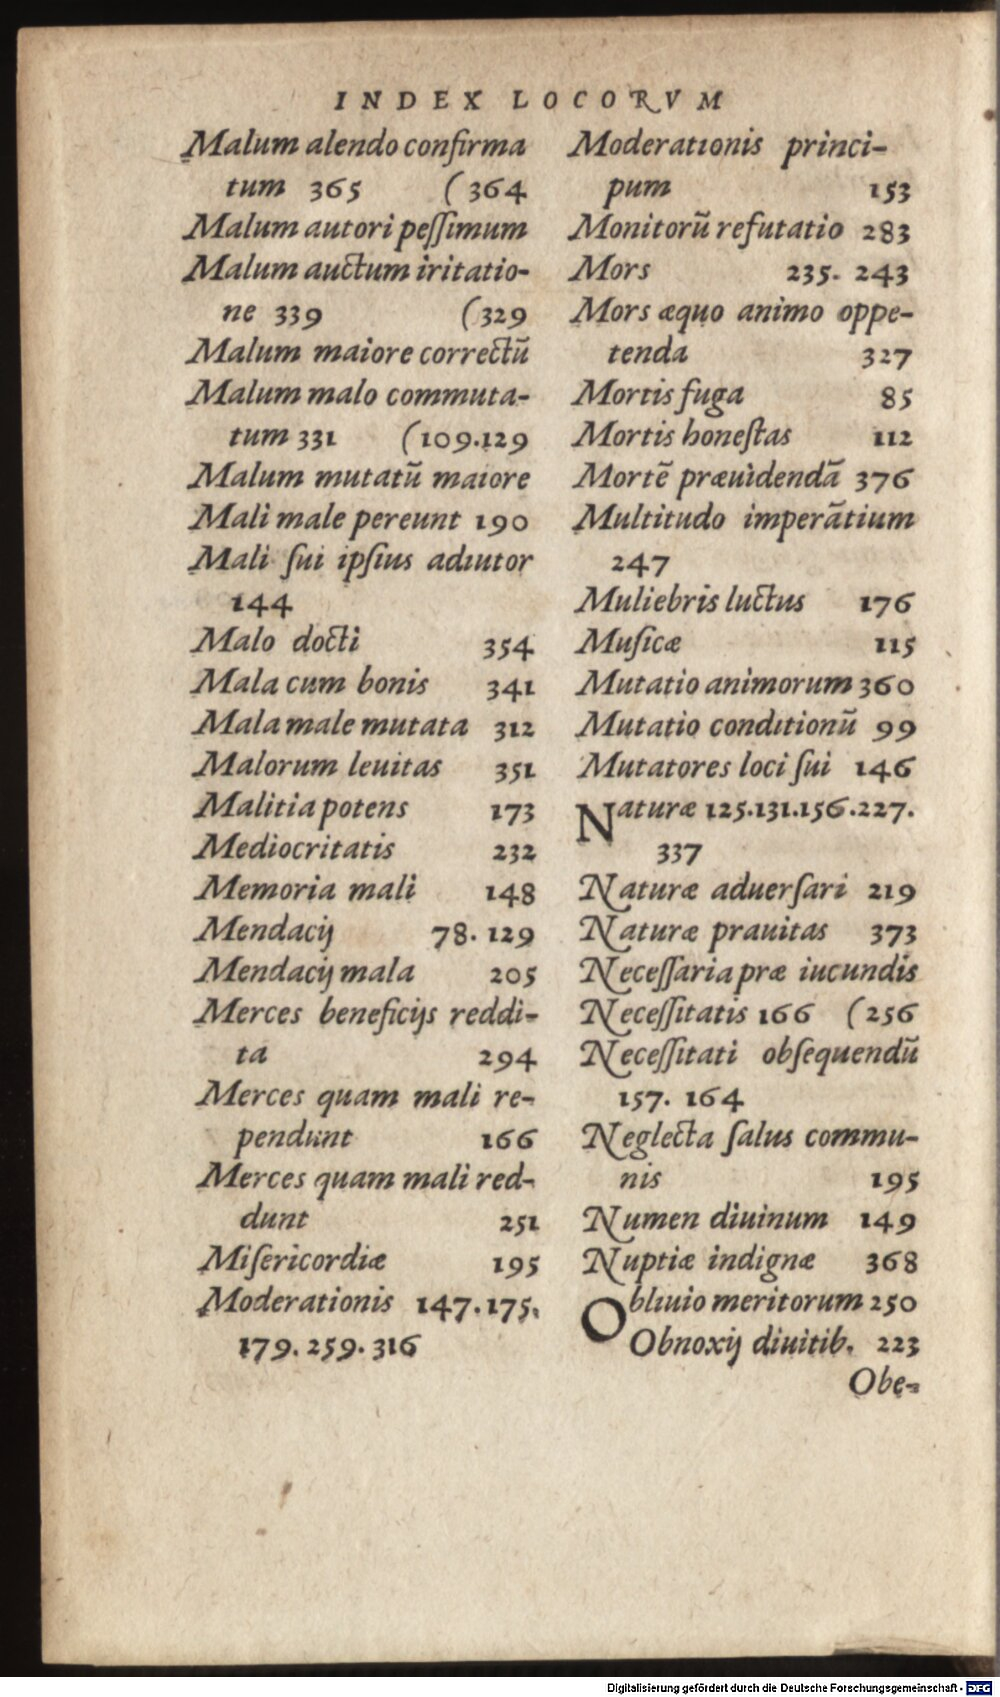 INDEX LOCORVM
Malum alendo confirma
tum 365 (364
Malum autori peſſimum
Malum auctum iritatio-
ne 339 (329
Malum maiore correctū
Malum malo commuta-
tum 331 (109.129
Malum mutatū maiore
Mali male pereunt 190
Mali ſui ipſius adiutor
144
Malo docti 354
Mala cum bonis 341
Mala male mutata 312
Malorum leuitas 351
Malitia potens 173
Mediocritatis 232
Memoria mali 148
Mendacij 78. 129
Mendacij mala 205
Merces beneficijs reddi-
ta 294
Merces quam mali re-
pendunt 166
Merces quam mali red-
dunt 251
Miſericordiæ 195
Moderationis 147.175.
179.259.316
Moderationis princi-
pum 153
Monitorū refutatio 283
Mors 235. 243
Mors æquo animo oppe-
tenda 327
Mortis fuga 85
Mortis honeſtas 112
Mortē præuidendā 376
Multitudo imperātium
247
Muliebris luctus 176
Muſicæ 115
Mutatio animorum 360
Mutatio conditionū 99
Mutatores loci ſui 146
Naturæ 125.131.156.227.
337
Naturæ aduerſari 219
Naturæ prauitas 373
Neceſſaria præ iucundis
Neceſſitatis 166 (256
Neceſſitati obſequendū
157. 164
Neglecta ſalus commu-
nis 195
Numen diuinum 149
Nuptiæ indignæ 368
Obliuio meritorum 250
Obnoxij diuitib. 223
Obe-
Digitalisierung gefördert durch die Deutsche Forschungsgemeinschaft - DFG